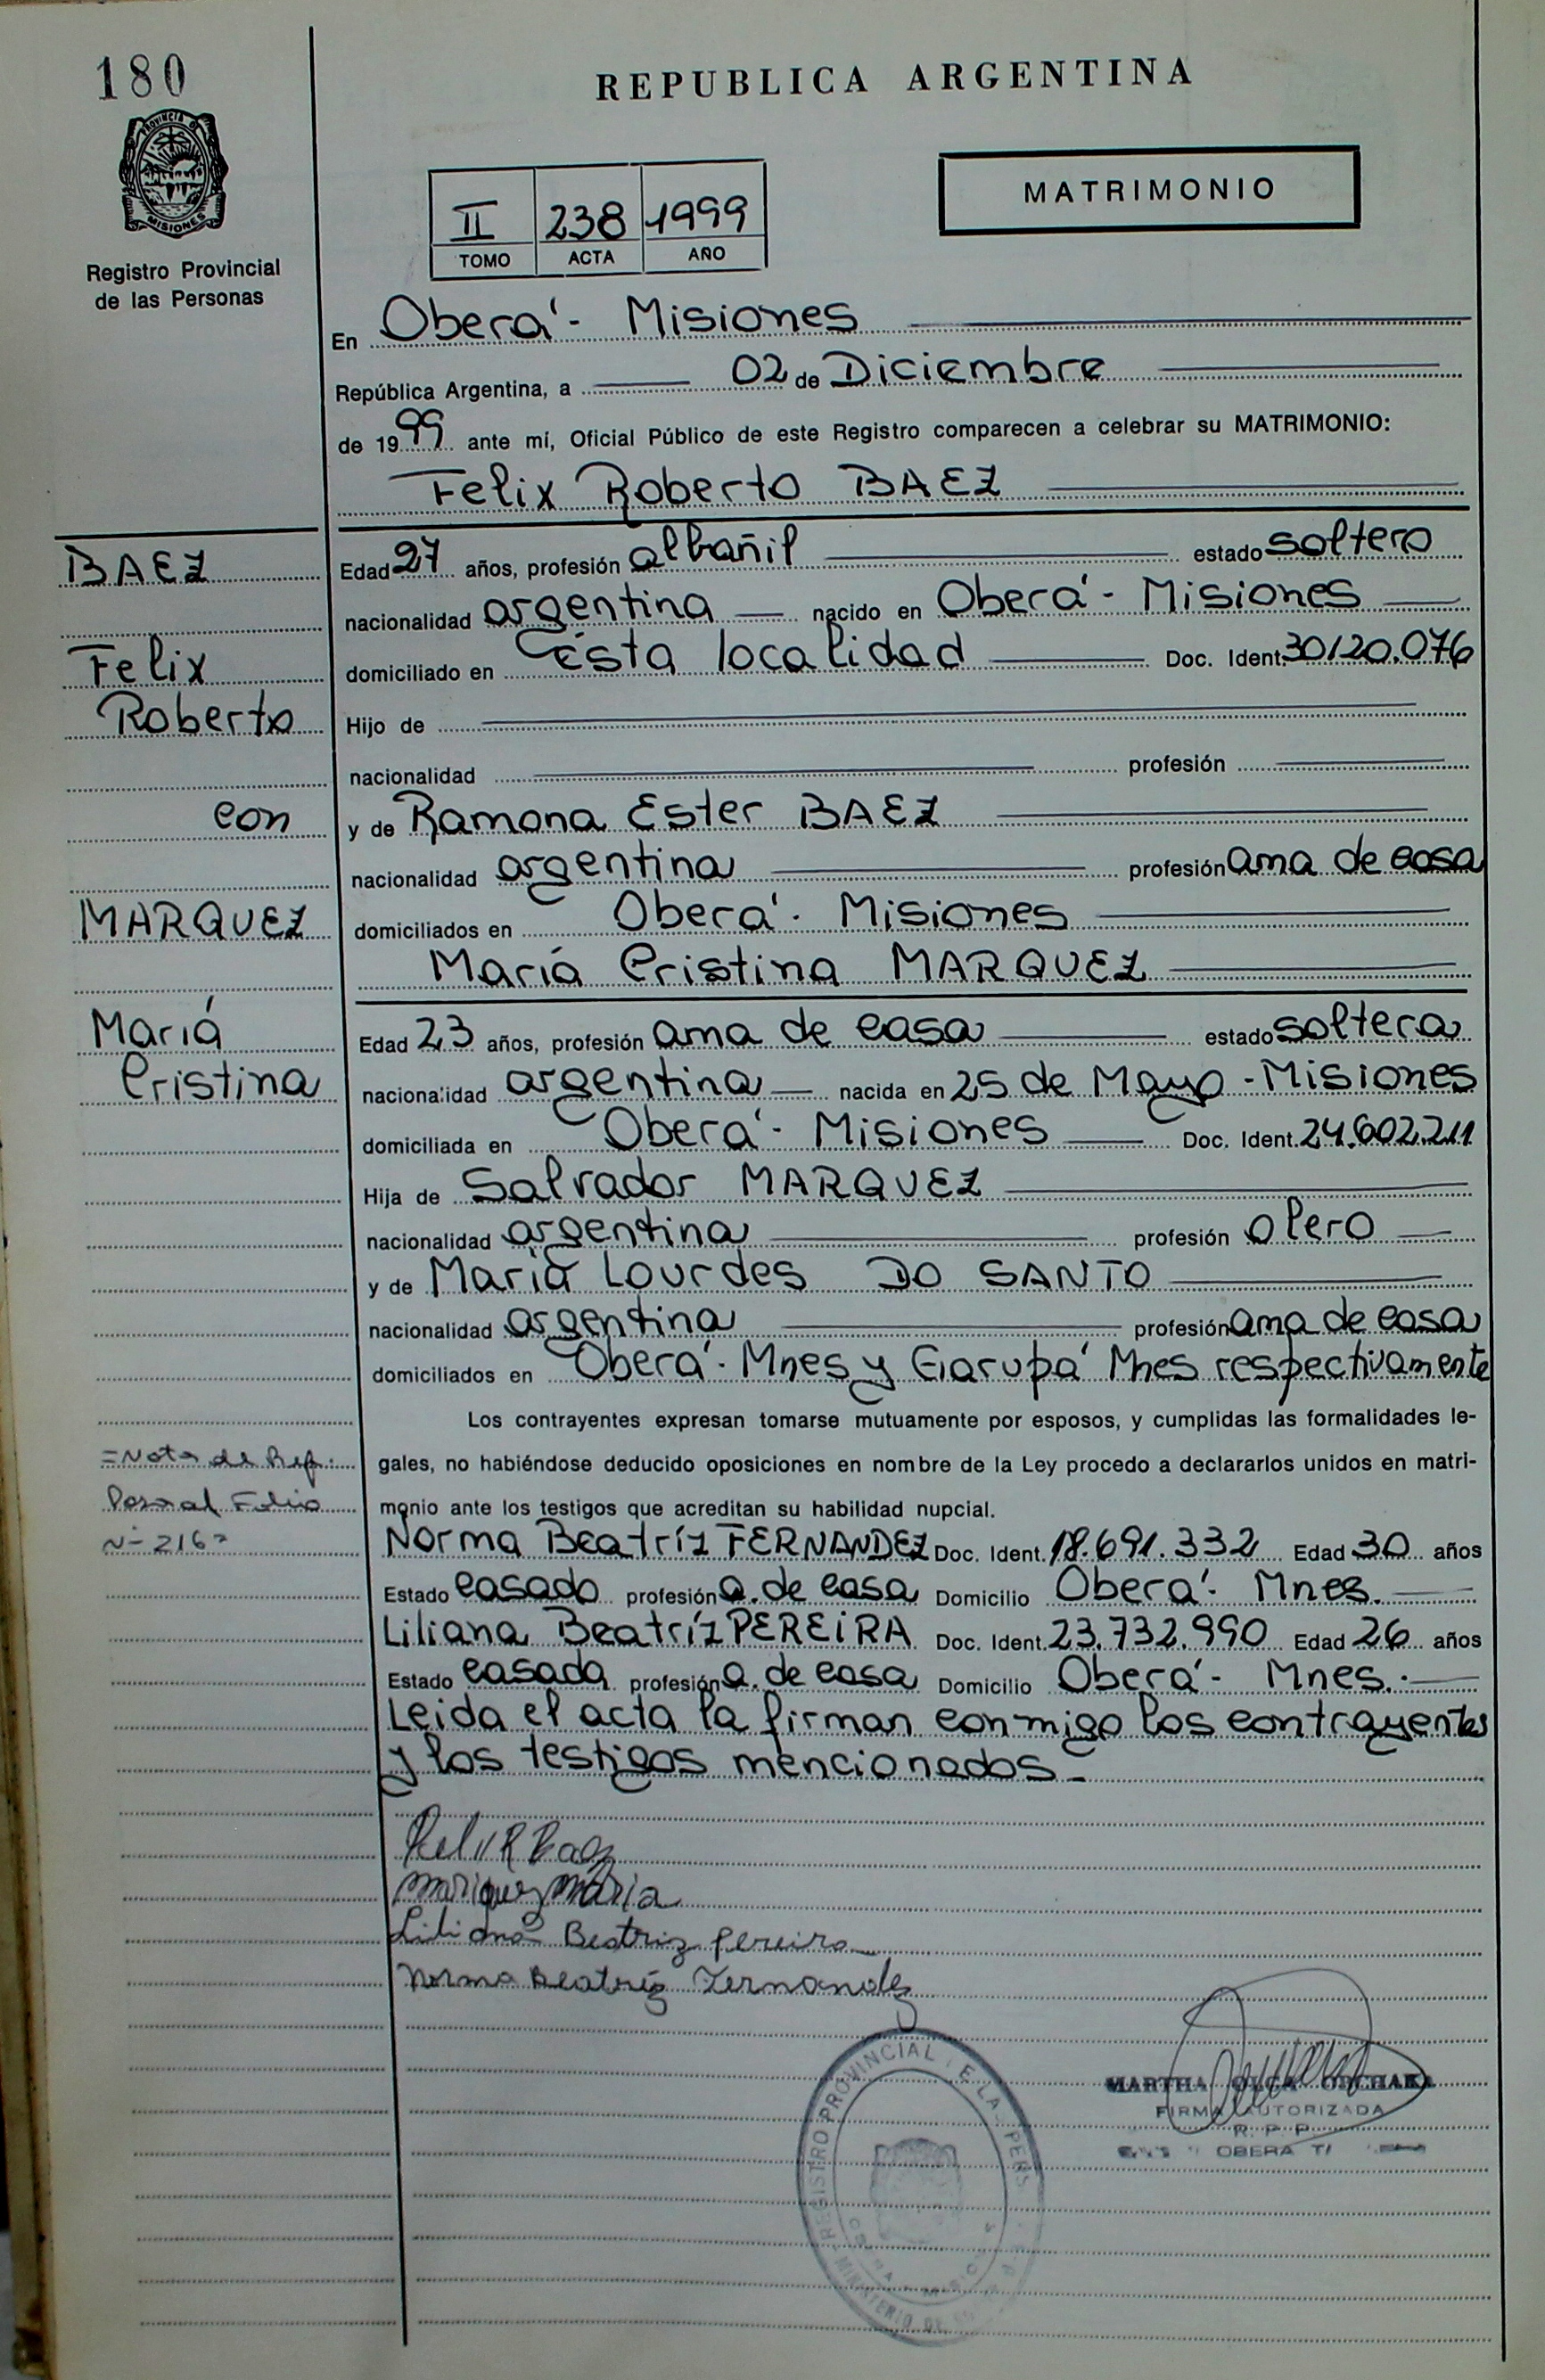 180
REPUBLICA ARGENTINA
PROVINCIA DE
MISIONES
MATRIMONIO
II 238 1999
TOMO ACTA AÑO
Registro Provincial
de las Personas
En Oberá - Misiones
República Argentina, a 02 de Diciembre
de 1999 ante mí, Oficial Público de este Registro comparecen a celebrar su MATRIMONIO:
Felix Roberto BAEZ
BAEZ
Edad 27 años, profesión albañil estado soltero
nacionalidad argentina nacido en Oberá - Misiones
Felix
domiciliado en Esta localidad Doc. Ident. 30120.076
Roberto
Hijo de
nacionalidad profesión
con
y de Ramona Ester BAEZ
nacionalidad argentina profesión ama de casa
MARQUEZ
domiciliados en Oberá - Misiones
María Cristina MARQUEZ
Mariá
Edad 23 años, profesión ama de casa estado soltera
Cristina
nacionalidad argentina nacida en 25 de Mayo - Misiones
domiciliada en Oberá - Misiones Doc. Ident. 24.602.211
Hija de Salvador MARQUEZ
nacionalidad argentina profesión olero
y de María Lourdes DO SANTO
nacionalidad argentina profesión ama de casa
domiciliados en Oberá - Mnes y Garupá Mnes respectivamente
Los contrayentes expresan tomarse mutuamente por esposos, y cumplidas las formalidades le-
=Nota de Ref.
gales, no habiéndose deducido oposiciones en nombre de la Ley procedo a declararlos unidos en matri-
Pasa al Folio
monio ante los testigos que acreditan su habilidad nupcial.
Nº 216=
Norma Beatríz FERNANDEZ Doc. Ident. 18.691.332 Edad 30 años
Estado casado profesión a. de casa Domicilio Oberá - Mnes.
Liliana Beatríz PEREIRA Doc. Ident. 23.732.990 Edad 26 años
Estado casada profesión a. de casa Domicilio Oberá - Mnes.
Leida el acta la firman conmigo los contrayentes
y los testigos mencionados -
Felix R Baez
Marquez Maria
Liliana Beatriz Pereira
Norma Beatriz Fernandez
REGISTRO PROVINCIAL DE LAS PERS
MINISTERIO DE
MARTHA OLGA
FIRMA AUTORIZADA
R. P. P.
OBERA